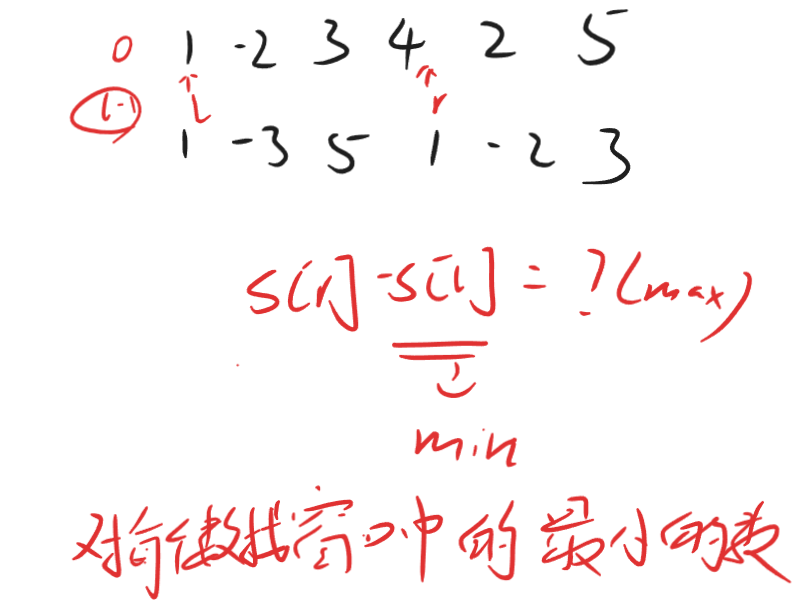 0 1 -2 3 4 2 5
l-1 l r
1 -3 5 1 -2 3
s[r]-s[l] = ?(max)
min
对前缀找窗口中的最小的数